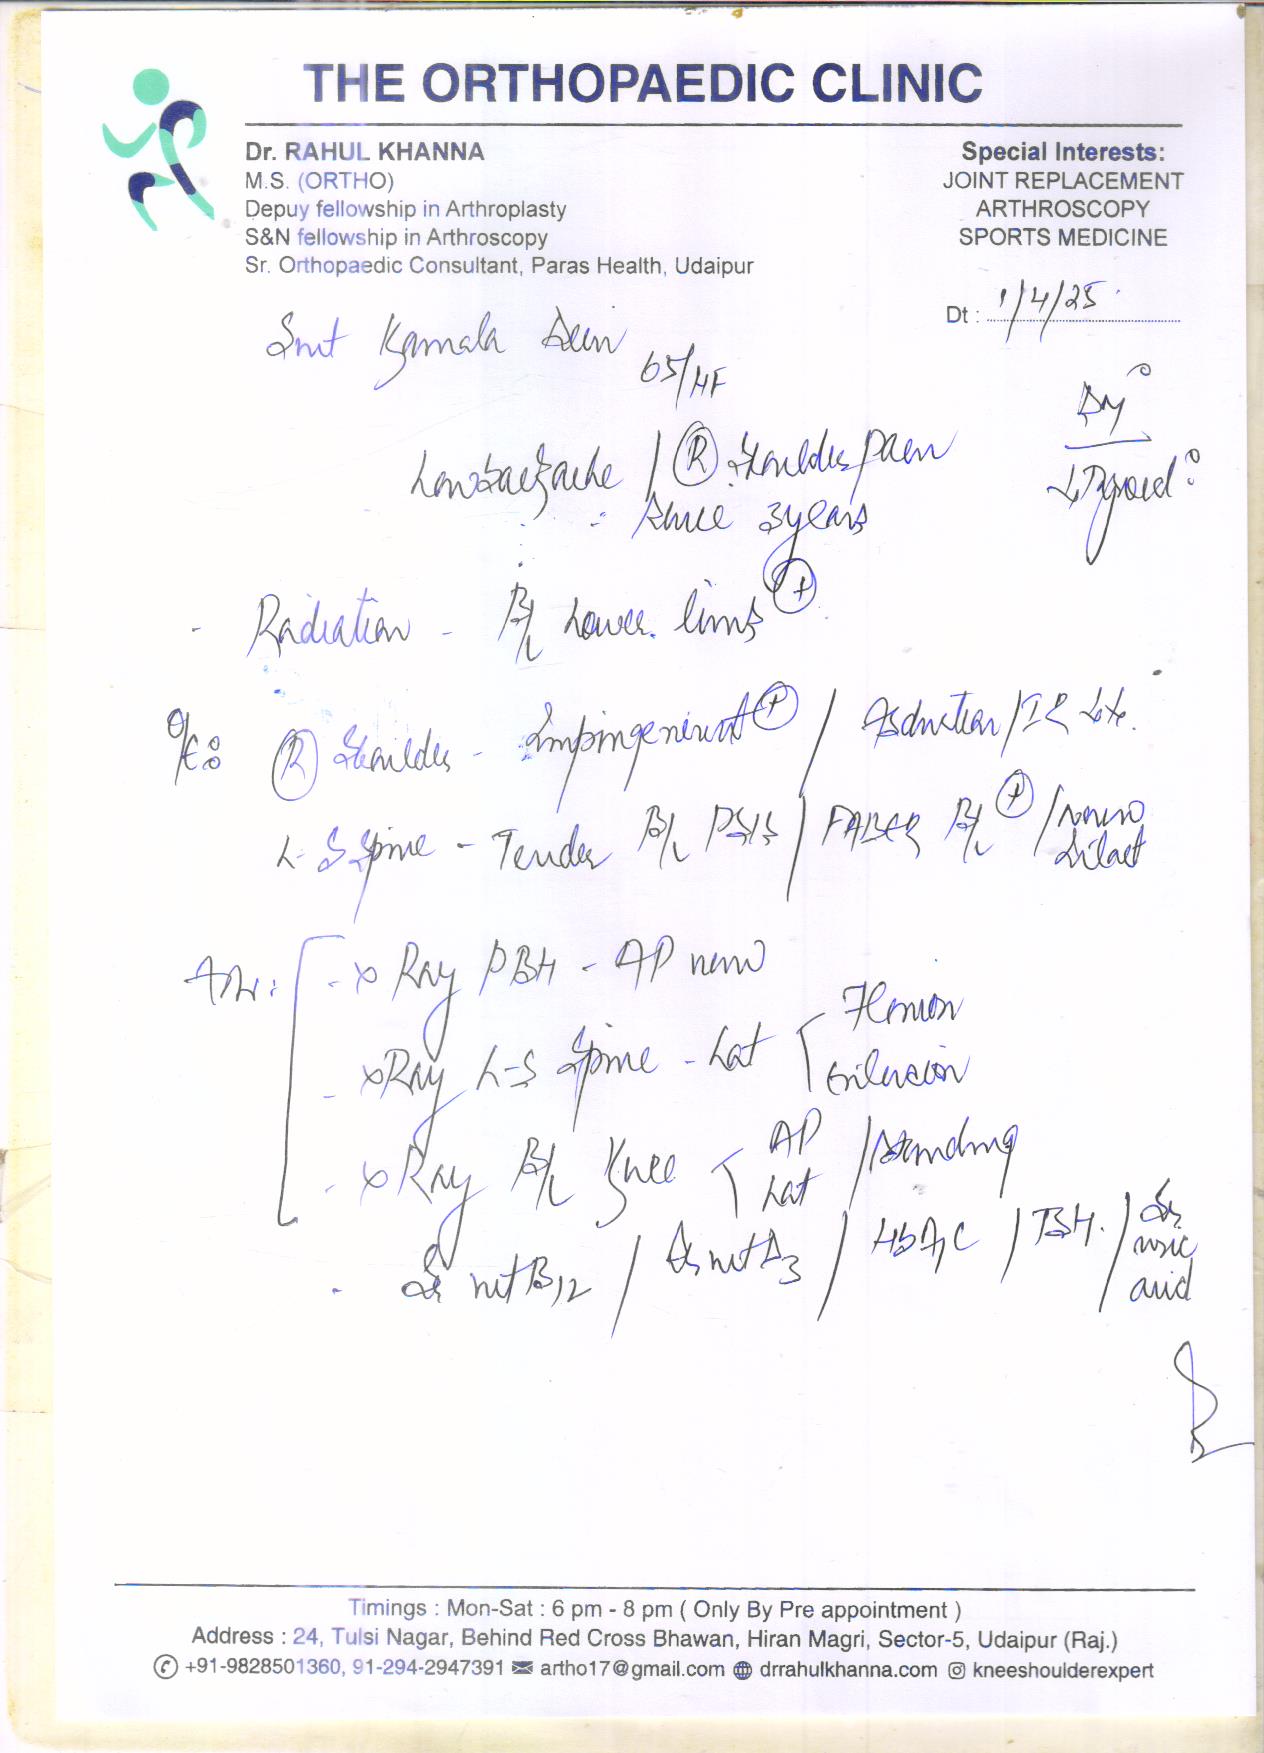 THE ORTHOPAEDIC CLINIC
Dr. RAHUL KHANNA
M.S. (ORTHO)
Depuy fellowship in Arthroplasty
S&N fellowship in Arthroscopy
Sr. Orthopaedic Consultant, Paras Health, Udaipur
Special Interests:
JOINT REPLACEMENT
ARTHROSCOPY
SPORTS MEDICINE
Dt : 1/4/25
Smt Kamala
65/
Low backache / R Shoulder pain
Since 3 years
- Radiation - B/L Lower limb +
O/E: R Shoulder - Impingement + / Abduction / IR
L-S Spine - Tender B/L PSIS / FABER B/L + / Neuro
Intact
- X Ray PBH - AP view
- X Ray L-S Spine - Lat Flexion
Extension
- X Ray B/L Knee AP / Standing
Lat
- Sr vit B12 / Sr vit D3 / HbA1C / TSH / Sr
uric
acid
Timings : Mon-Sat : 6 pm - 8 pm ( Only By Pre appointment )
Address : 24, Tulsi Nagar, Behind Red Cross Bhawan, Hiran Magri, Sector-5, Udaipur (Raj.)
+91-9828501360, 91-294-2947391 artho17@gmail.com drrahulkhanna.com kneeshoulderexpert